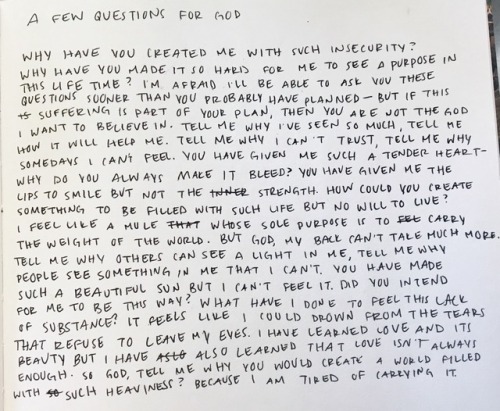 A FEW QUESTIONS FOR GOD
WHY HAVE YOU CREATED ME WITH SUCH INSECURITY?
WHY HAVE YOU MADE IT SO HARD FOR ME TO SEE A PURPOSE IN
THIS LIFE TIME? I'M AFRAID I'LL BE ABLE TO ASK YOU THESE
QUESTIONS SOONER THAN YOU PROBABLY HAVE PLANNED – BUT IF THIS
SUFFERING IS PART OF YOUR PLAN, THEN YOU ARE NOT THE GOD
I WANT TO BELIEVE IN. TELL ME WHY I'VE SEEN SO MUCH, TELL ME
HOW IT WILL HELP ME. TELL ME WHY I CAN'T TRUST, TELL ME WHY
SOMEDAYS I CAN'T FEEL. YOU HAVE GIVEN ME SUCH A TENDER HEART–
WHY DO YOU ALWAYS MAKE IT BLEED? YOU HAVE GIVEN ME THE
LIPS TO SMILE BUT NOT THE INNER STRENGTH. HOW COULD YOU CREATE
SOMETHING TO BE FILLED WITH SUCH LIFE BUT NO WILL TO LIVE?
I FEEL LIKE A MULE THAT WHOSE SOLE PURPOSE IS TO CARRY
THE WEIGHT OF THE WORLD. BUT GOD, MY BACK CAN'T TAKE MUCH MORE.
TELL ME WHY OTHERS CAN SEE A LIGHT IN ME, TELL ME WHY
PEOPLE SEE SOMETHING IN ME THAT I CAN'T. YOU HAVE MADE
SUCH A BEAUTIFUL SUN BUT I CAN'T FEEL IT. DID YOU INTEND
FOR ME TO BE THIS WAY? WHAT HAVE I DONE TO FEEL THIS LACK
OF SUBSTANCE? IT FEELS LIKE I COULD DROWN FROM THE TEARS
THAT REFUSE TO LEAVE MY EYES. I HAVE LEARNED LOVE AND ITS
BEAUTY BUT I HAVE ALSO LEARNED THAT LOVE ISN'T ALWAYS
ENOUGH. SO GOD, TELL ME WHY YOU WOULD CREATE A WORLD FILLED
WITH SO SUCH HEAVINESS? BECAUSE I AM TIRED OF CARRYING IT.